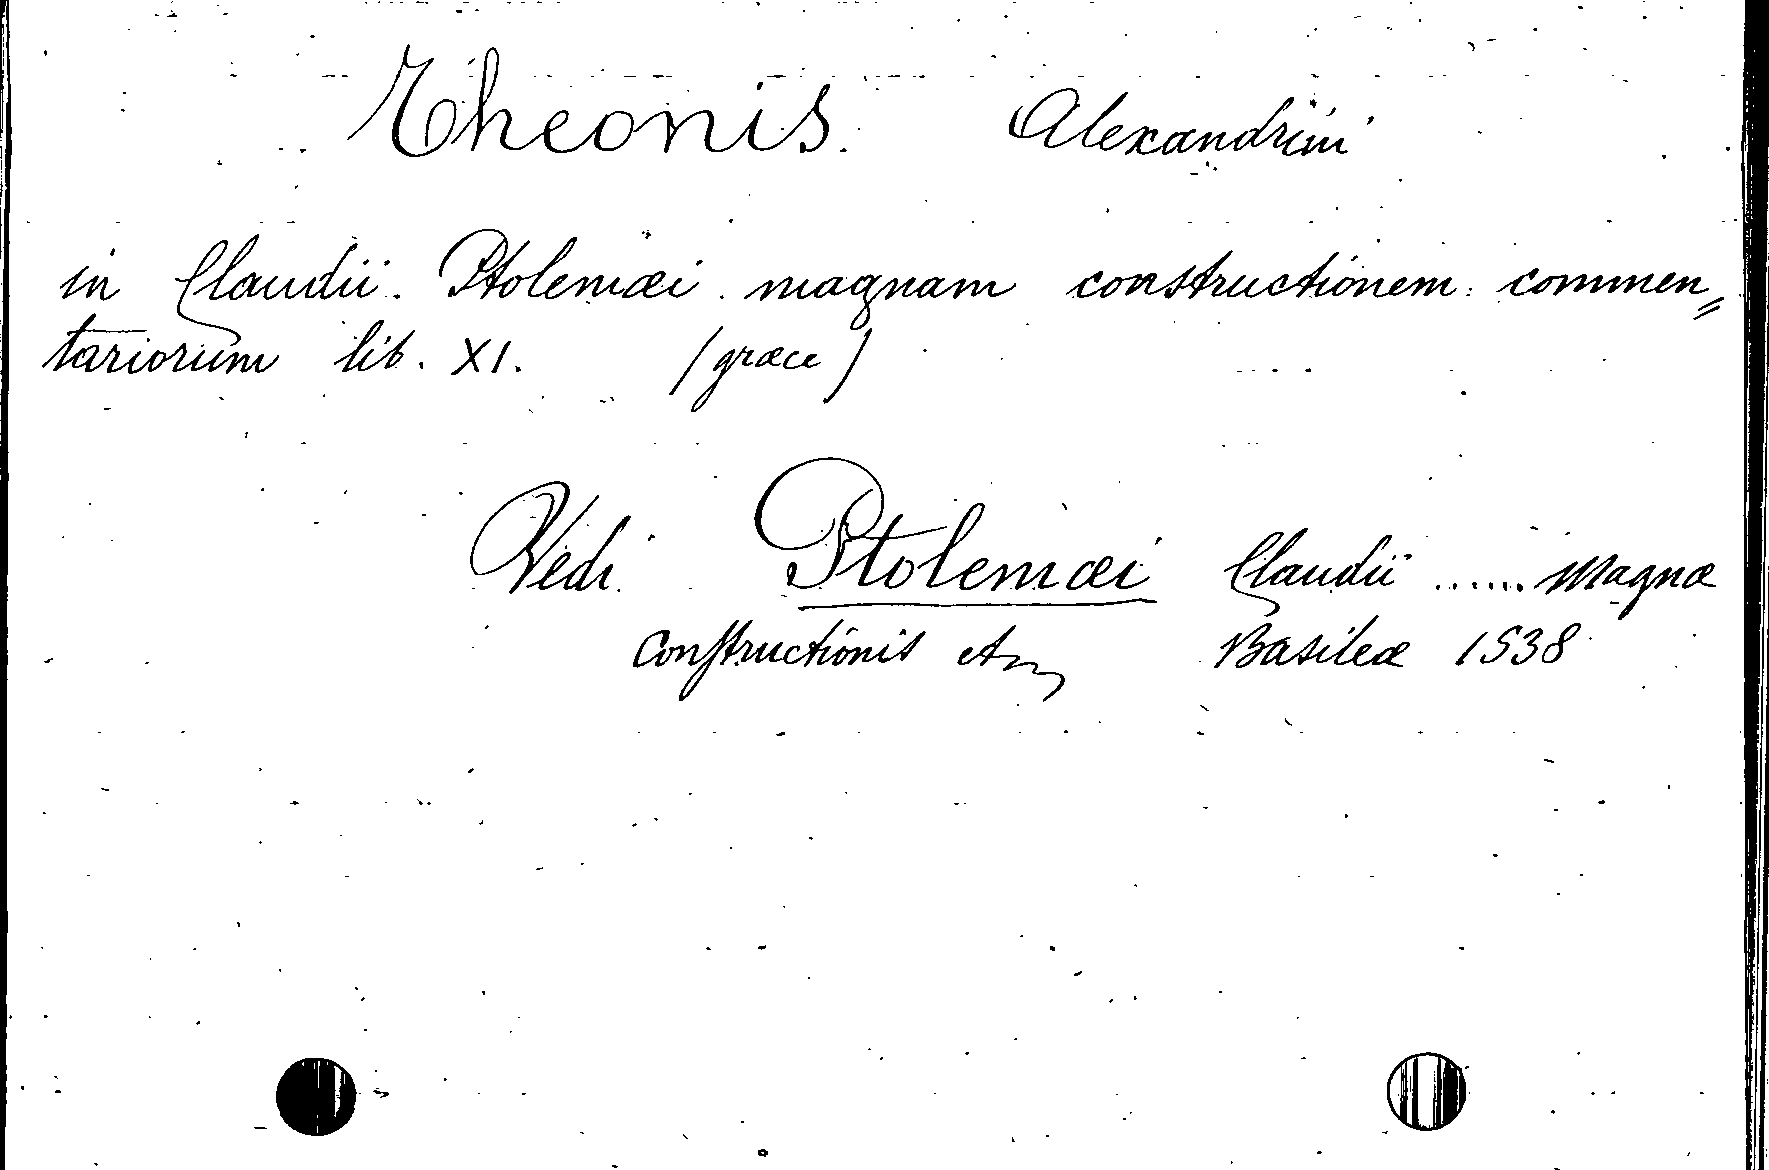 Theonis. Alexandrini
in Claudii. Ptolemæi. magnam constructionem. commen=
tariorum lib. XI. (græce)
Vedi Ptolemæi Claudii ...... Magnæ
Constructionis etc Basileæ 1538